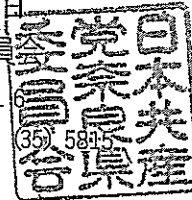 日本共産
党奈良県
委員会
日
員
6
(35) 5815